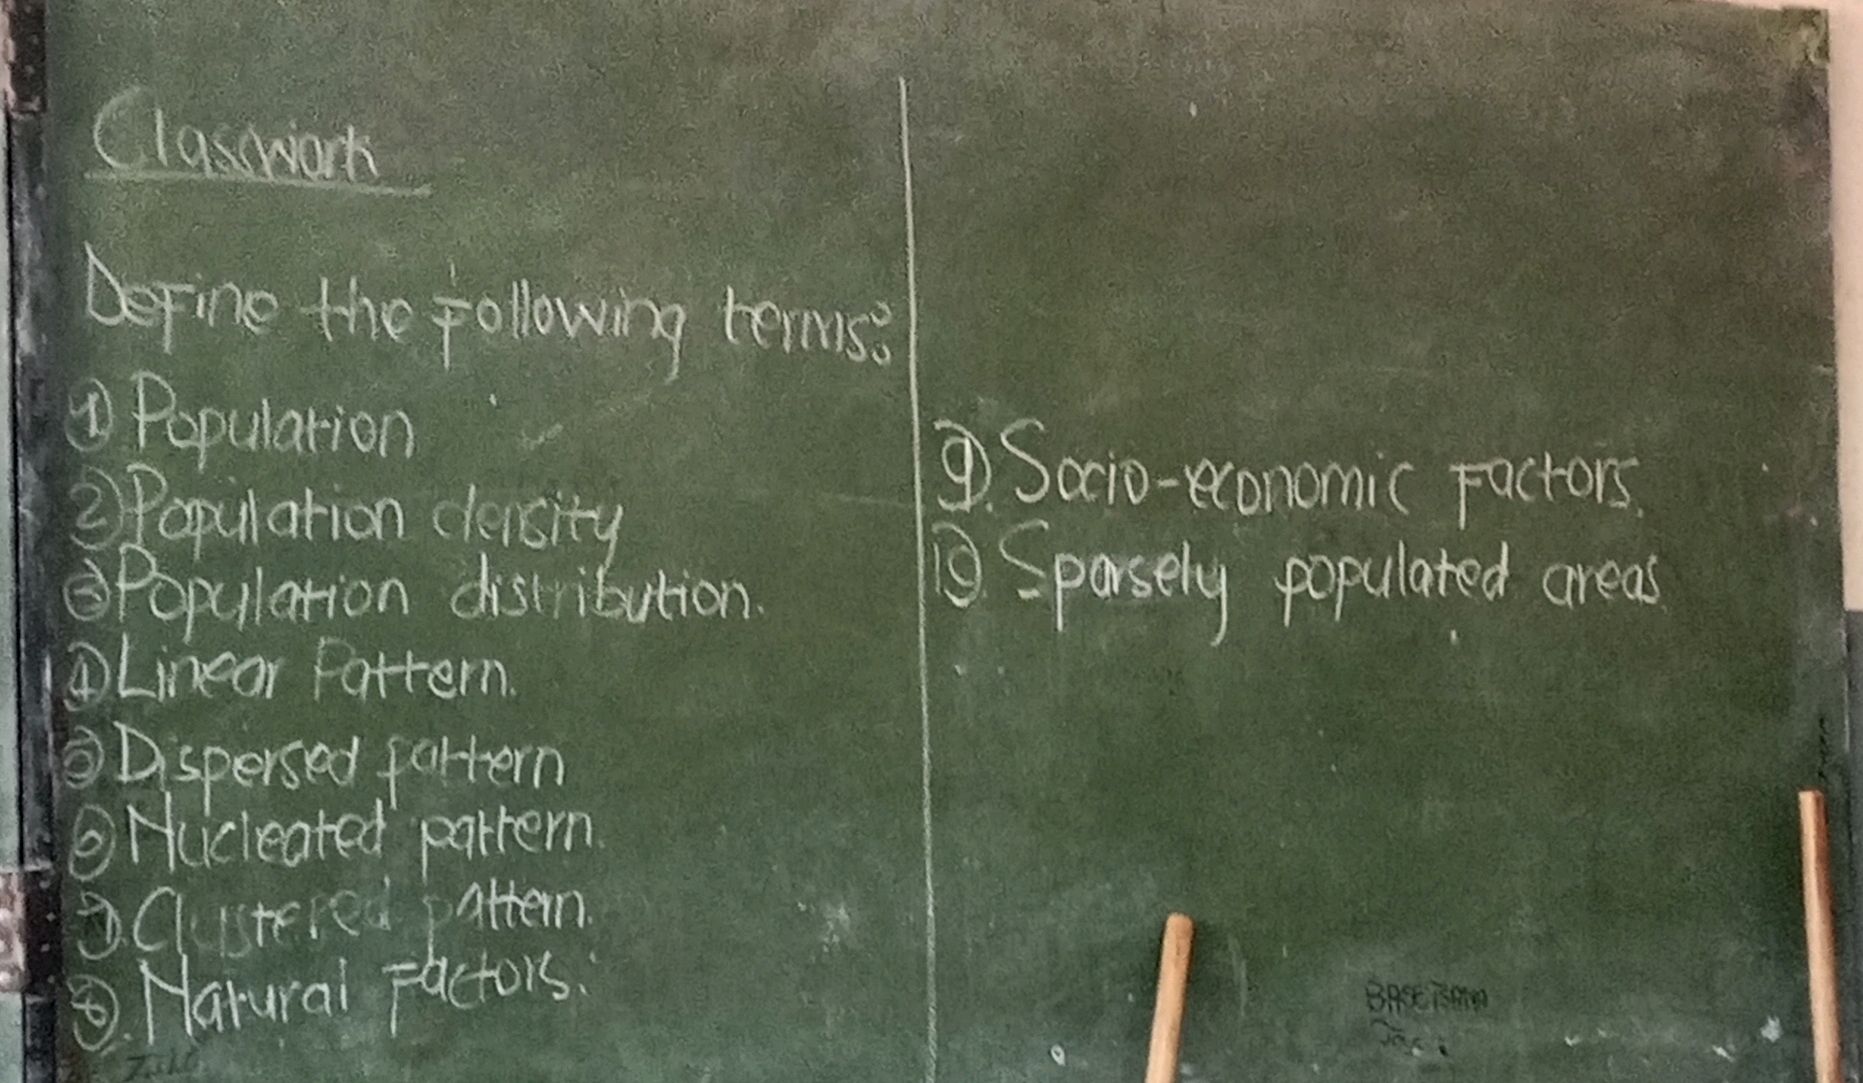 Classwork
Define the following terms:
① Population
② Population density
③ Population distribution.
④ Linear Pattern.
⑤ Dispersed pattern
⑥ Nucleated pattern.
⑦. Clustered pattern.
⑧. Natural Factors.
⑨. Socio-economic Factors.
⑩. Sparsely populated areas.